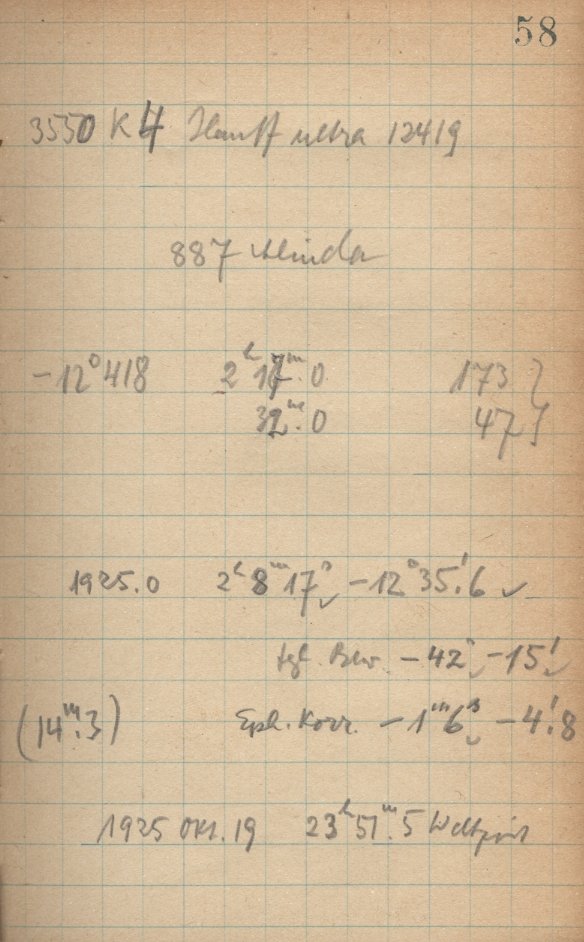 58
3550 K4 Hauff ultra 12419
887 Alinda
-12°418 2ʰ 17ᵐ.0 173 }
32ᵐ.0 47 }
1925.0 2ʰ 8ᵐ 17ˢ ✓ -12° 35!6 ✓
tgl. Bew. -42ˢ ✓ -15' ✓
(14ᵐ.3) Eph. Korr. -1ᵐ 6ˢ ✓ -4!8
1925 Okt. 19 23ʰ 51ᵐ.5 Weltzeit